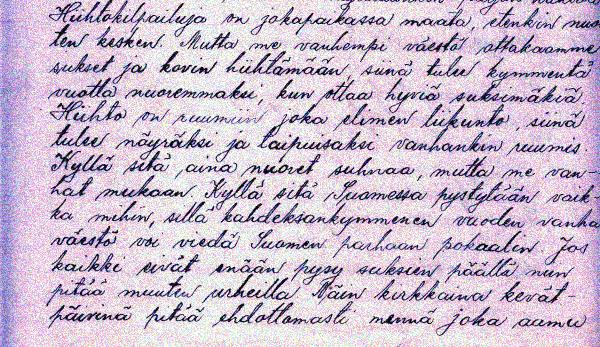 Hiihtokilpailuja on jokapaikassa maata, etenkin nuor
ten kesken. Mutta me vanhempi väestö ottakaamme
sukset ja kovin hiihtämään, siinä tulee kymmentä
vuotta nuoremmaksi, kun ottaa hyviä suksimäkiä.
Hiihto on ruumiin joka elimen liikunto, siinä
tulee näyräksi ja taipuisaksi vanhankin ruumis
Kyllä sitä aina nuoret suhnaa, mutta me van-
hat mukaan. Kyllä sitä Suomessa pystytään vaik-
ka mihin, sillä kahdeksankymmenen vuoden vanha
väestö voi viedä Suomen parhaan pokaalin. Jos
kaikki eivät enään pysy suksien päällä niin
pitää muuten urheilla Näin kirkkaina kevät-
päivinä pitää ehdottomasti mennä joka aamu